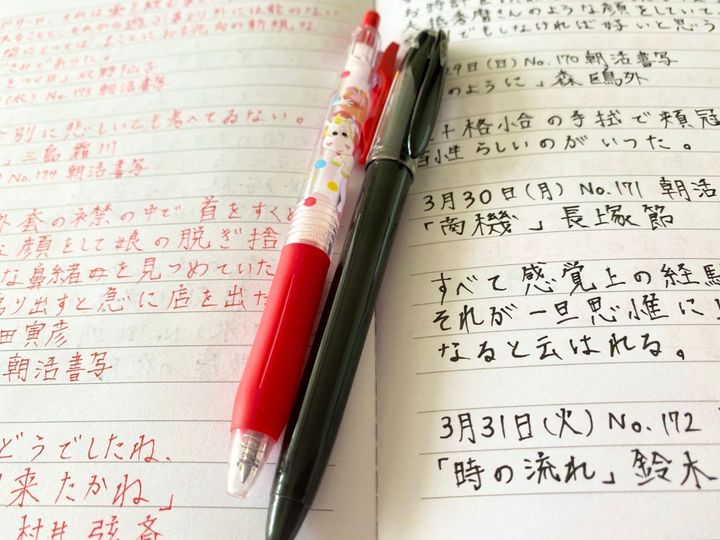 (水) No.173 朝活書写
別に悲しいとも考へてゐない。
」三島霜川
No.174 朝活書写
外套の衣襟の中で首をすくめ
な顔をして娘の脱ぎ捨
な鼻緒 を見つめていた
り出すと急に店を出た
田寅彦
朝活書写
どうでしたね、
来たかね」
村井弦斎
さんのような顔をしていて
でもしなければ好いと思う
9日(日) No.170 朝活書写
のように」森鴎外
格小合の手拭で頬冠
百性らしいのがいつた。
3月30日(月) No.171 朝活
「商機」長塚節
すべて感覚上の経験
それが一旦思惟に
なると云はれる。
3月31日(火) No.172
「時の流れ」鈴木